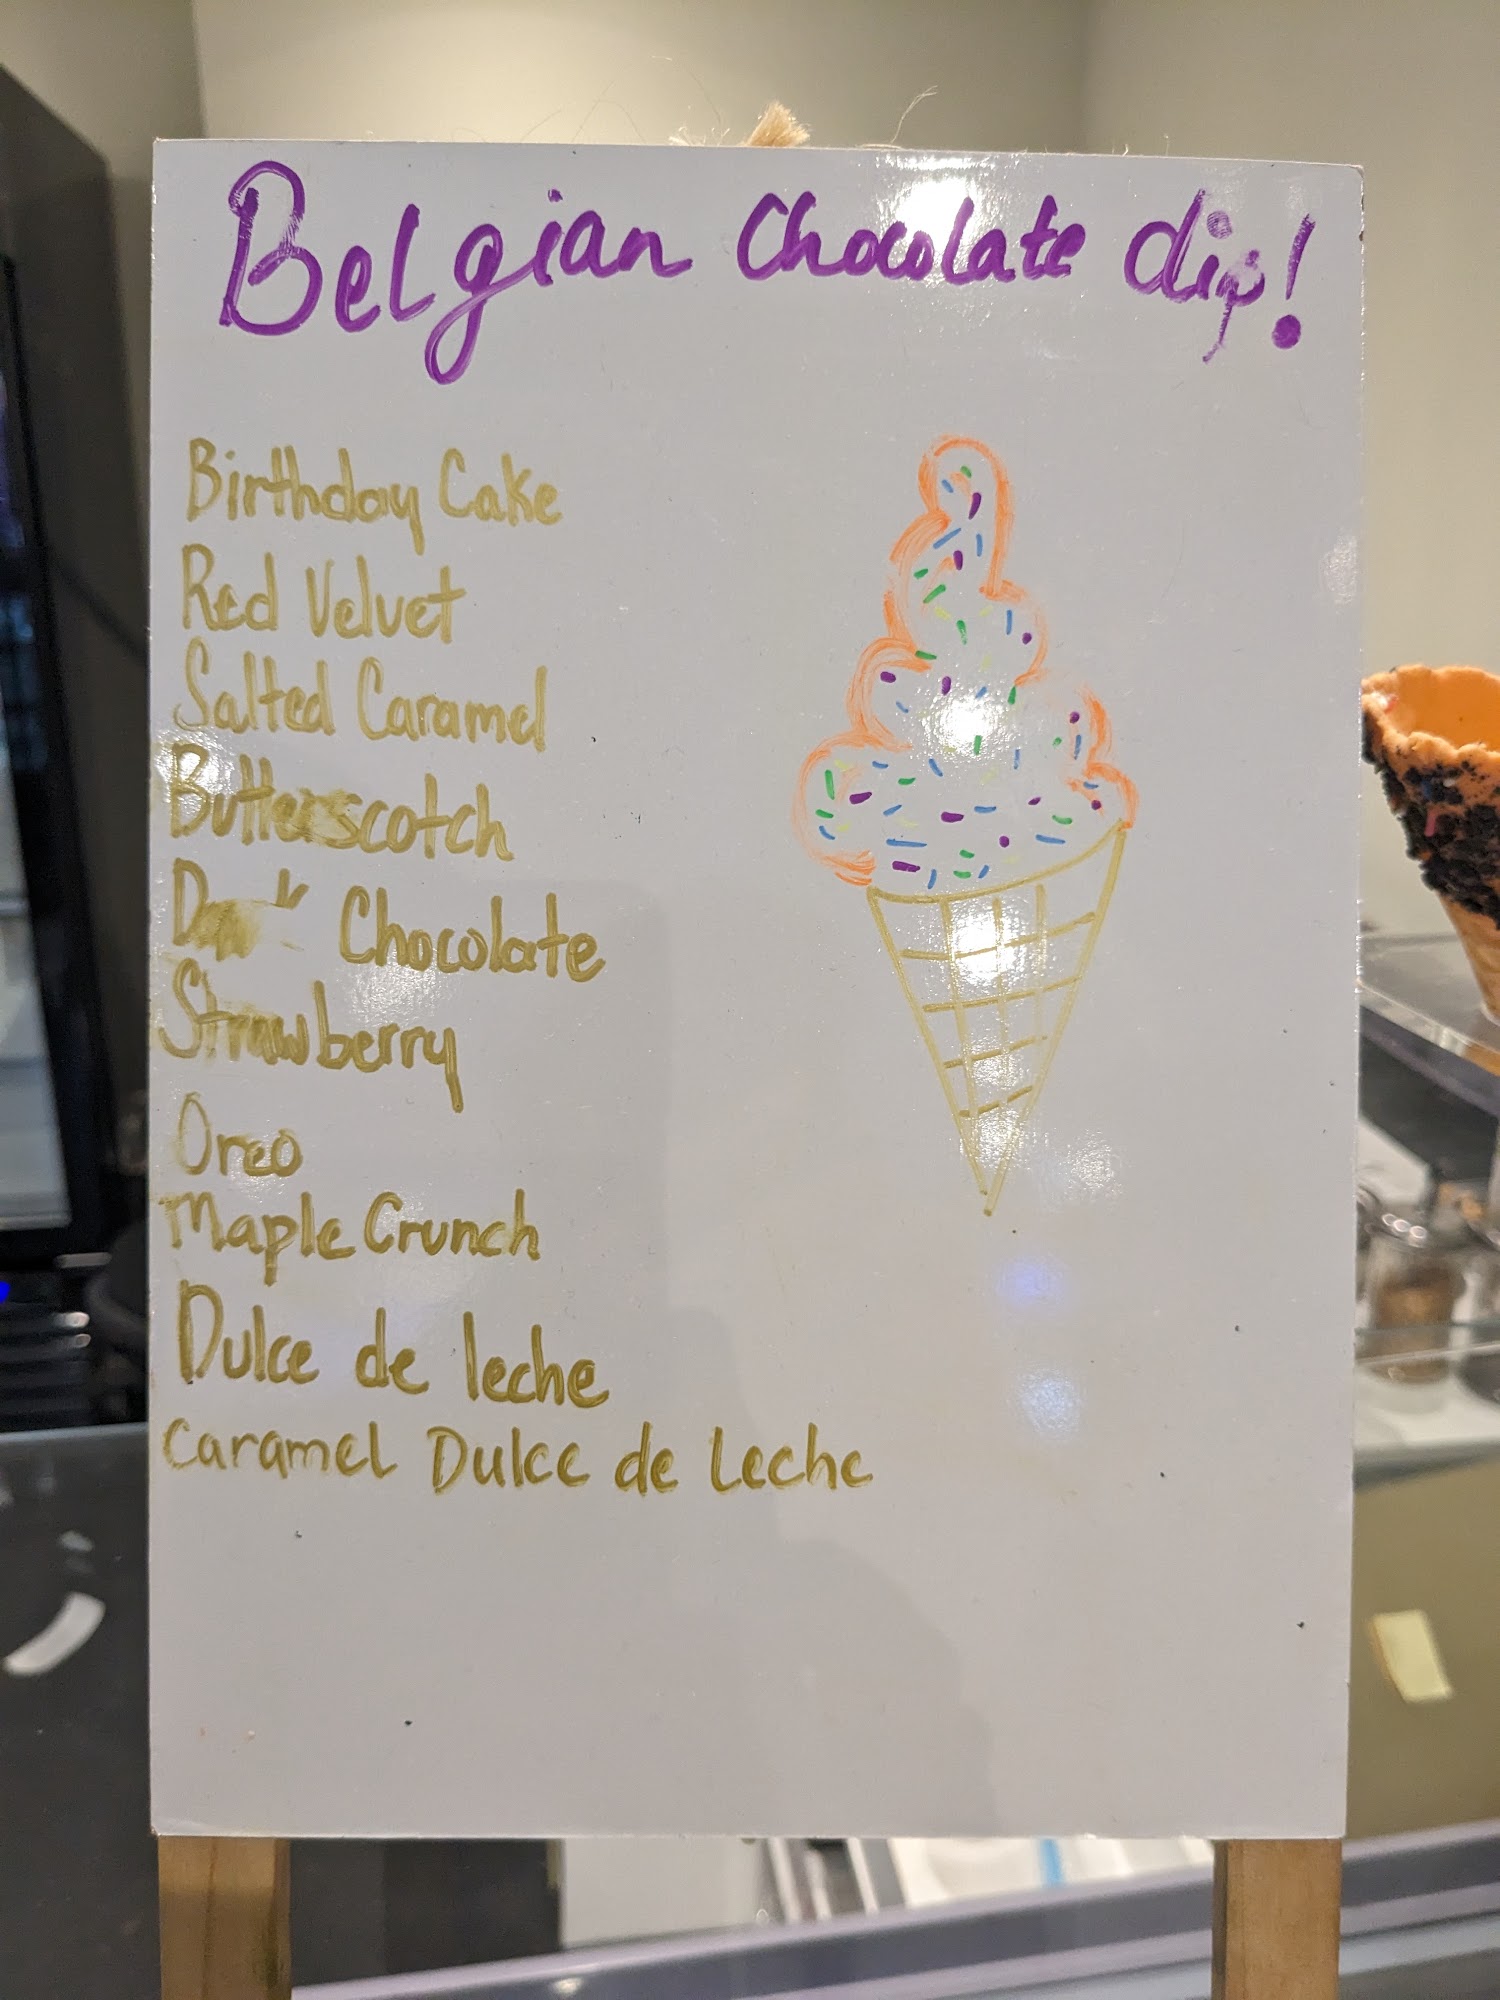 Belgian Chocolate dip!
Birthday Cake
Red Velvet
Salted Caramel
Butterscotch
Dark Chocolate
Strawberry
Oreo
Maple Crunch
Dulce de leche
Caramel Dulce de Leche